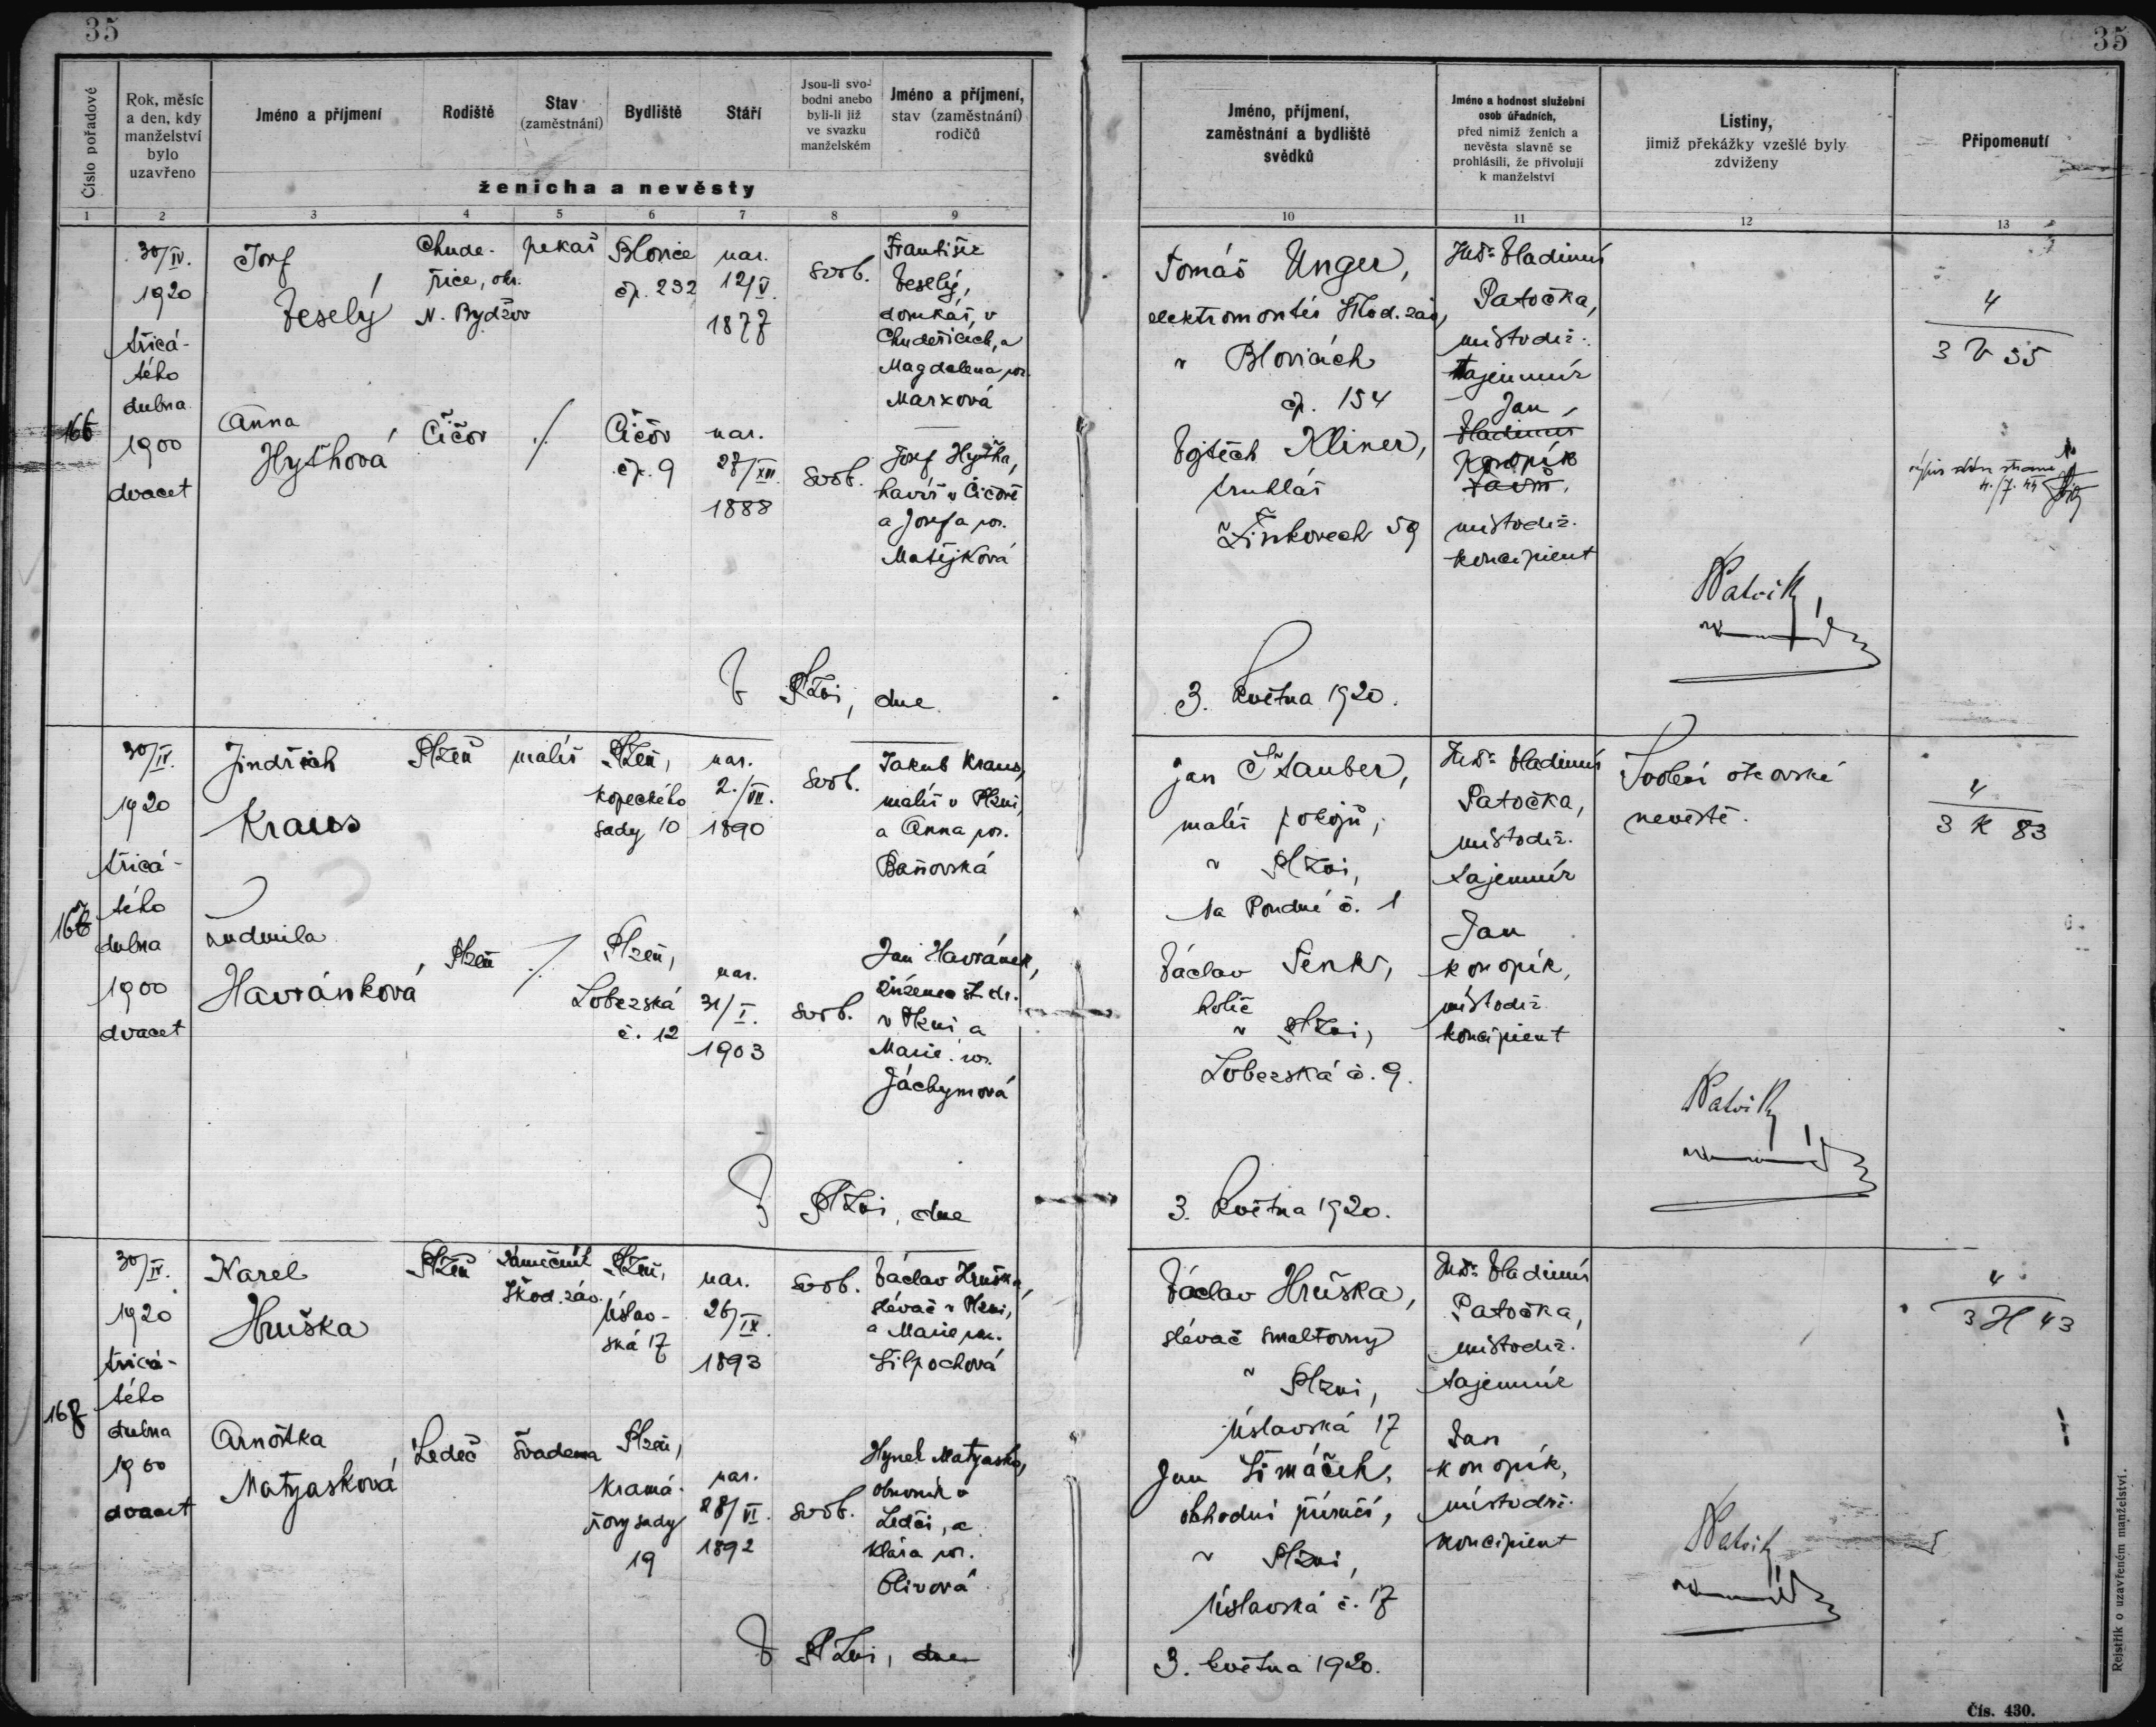 35
35
Číslo pořadové
Rok, měsíc a den, kdy manželství bylo uzavřeno
Jméno a příjmení
Rodiště
Stav (zaměstnání)
Bydliště
Stáří
Jsou-li svobodni anebo byli-li již ve svazku manželském
Jméno a příjmení, stav (zaměstnání) rodičů
ženicha a nevěsty
Jméno, příjmení, zaměstnání a bydliště svědků
Jméno a hodnost služební osob úřadních, před nimiž ženich a nevěsta slavně se prohlásili, že přivolují k manželství
Listiny, jimiž překážky vzešlé byly zdviženy
Připomenutí
1 2 3 4 5 6 7 8 9 10 11 12 13
30/IV.
1920
třicá-
tého
dubna
1900
dvacet
Josef
Veselý
Chude-
řice, okr.
N. Bydžov
pekař
Blovice
čp. 232
nar.
12/V.
1877
svob.
František
Veselý,
domkář v
Chudeřicích, a
Magdalena roz.
Marxová
Anna
Hyťhová
Čičov
Čičov
čp. 9
nar.
27/XII.
1888
svob.
Josef Hyťha,
havíř v Čičově
a Josefa roz.
Matějková
Tomáš Unger,
elektromontér Škod. záv,
v Blovicích
čp. 154
Vojtěch Kliner,
truhlář
v Žinkovech 59
JUDr Vladimír
Patočka,
místodrž.
tajemník
Jan
Vladimír
Konopík
místodrž.
koncipient
4
3 V 35
V Plzni, dne
3. května 1920.
30/IV.
1920
třicá-
tého
dubna
1900
dvacet
Jindřich
Kraus
Plzeň
malíř
Plzeň,
Kopeckého
sady 10
nar.
2./VII.
1890
svob.
Jakub Kraus,
malíř v Plzni
a Anna roz.
Baňovská
Ludmila
Havránková
Plzeň
Plzeň,
Lobezská
č. 12
nar.
31/I.
1903
svob.
Jan Havránek,
zřízenec st. dr.
v Plzni a
Marie roz.
Jáchymová
Jan Štauber,
malíř pokojů,
v Plzni,
Na Poudní č. 1
Václav Šenkr,
holič
v Plzni,
Lobezská č. 9.
JUDr Vladimír
Patočka,
místodrž.
tajemník
Jan
Konopík,
místodrž.
koncipient
Svolení otcovské
nevěstě.
4
3 K 83
V Plzni, dne
3. května 1920.
167
30/IV.
1920
třicá-
tého
dubna
1900
dvacet
Karel
Hruška
Plzeň
zámečník
Škod. záv.
Plzeň,
Úslav-
ská 17
nar.
26/IX.
1893
svob.
Václav Hruška,
slévač v Plzni,
a Marie roz.
Silpochová
Arnoštka
Matyasková
Ledeč
švadlena
Plzeň,
Kramá-
řovy sady
19
nar.
28/VI.
1892
svob.
Hynek Matyasko,
obuvník v
Ledči, a
Klára roz.
Olivová
Václav Hruška,
slévač smaltovny
v Plzni,
Úslavská 17
Jan Šimáček,
obchodní příručí,
v Plzni,
Úslavská č. 17
JUDr Vladimír
Patočka,
místodrž.
tajemník
Jan
Konopík,
místodrž.
koncipient
4
3 H 43
V Plzni, dne
3. května 1920.
Rejstřík o uzavřeném manželství.
Čís. 430.